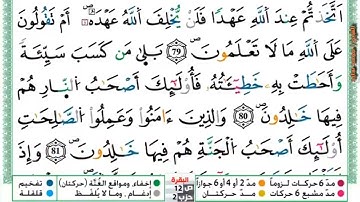 ٱتَّخَذتُّمْ عِندَ ٱللَّهِ عَهْدًا فَلَن يُخْلِفَ ٱللَّهُ عَهْدَهُۥٓ ۖ أَمْ تَقُولُونَ
عَلَى ٱللَّهِ مَا لَا تَعْلَمُونَ 79 بَلَىٰ مَن كَسَبَ سَيِّئَةً
وَأَحَٰطَتْ بِهِۦ خَطِيٓـَٔتُهُۥ فَأُو۟لَٰٓئِكَ أَصْحَٰبُ ٱلنَّارِ ۖ هُمْ
فِيهَا خَٰلِدُونَ 80 وَٱلَّذِينَ ءَامَنُوا۟ وَعَمِلُوا۟ ٱلصَّٰلِحَٰتِ
أُو۟لَٰٓئِكَ أَصْحَٰبُ ٱلْجَنَّةِ ۖ هُمْ فِيهَا خَٰلِدُونَ 81 وَإِذْ
مدّ 6 حركات لزوماً مدّ 2 أو 4 أو 6 جوازاً البقرة ص 12 إخفاء، ومواقع الغُنَّة (حركتان) تفخيم
مدّ مشبع 6 حركات مدّ حركتان حزب 2 إدغام، وما لا يُلفَظ قلقلة